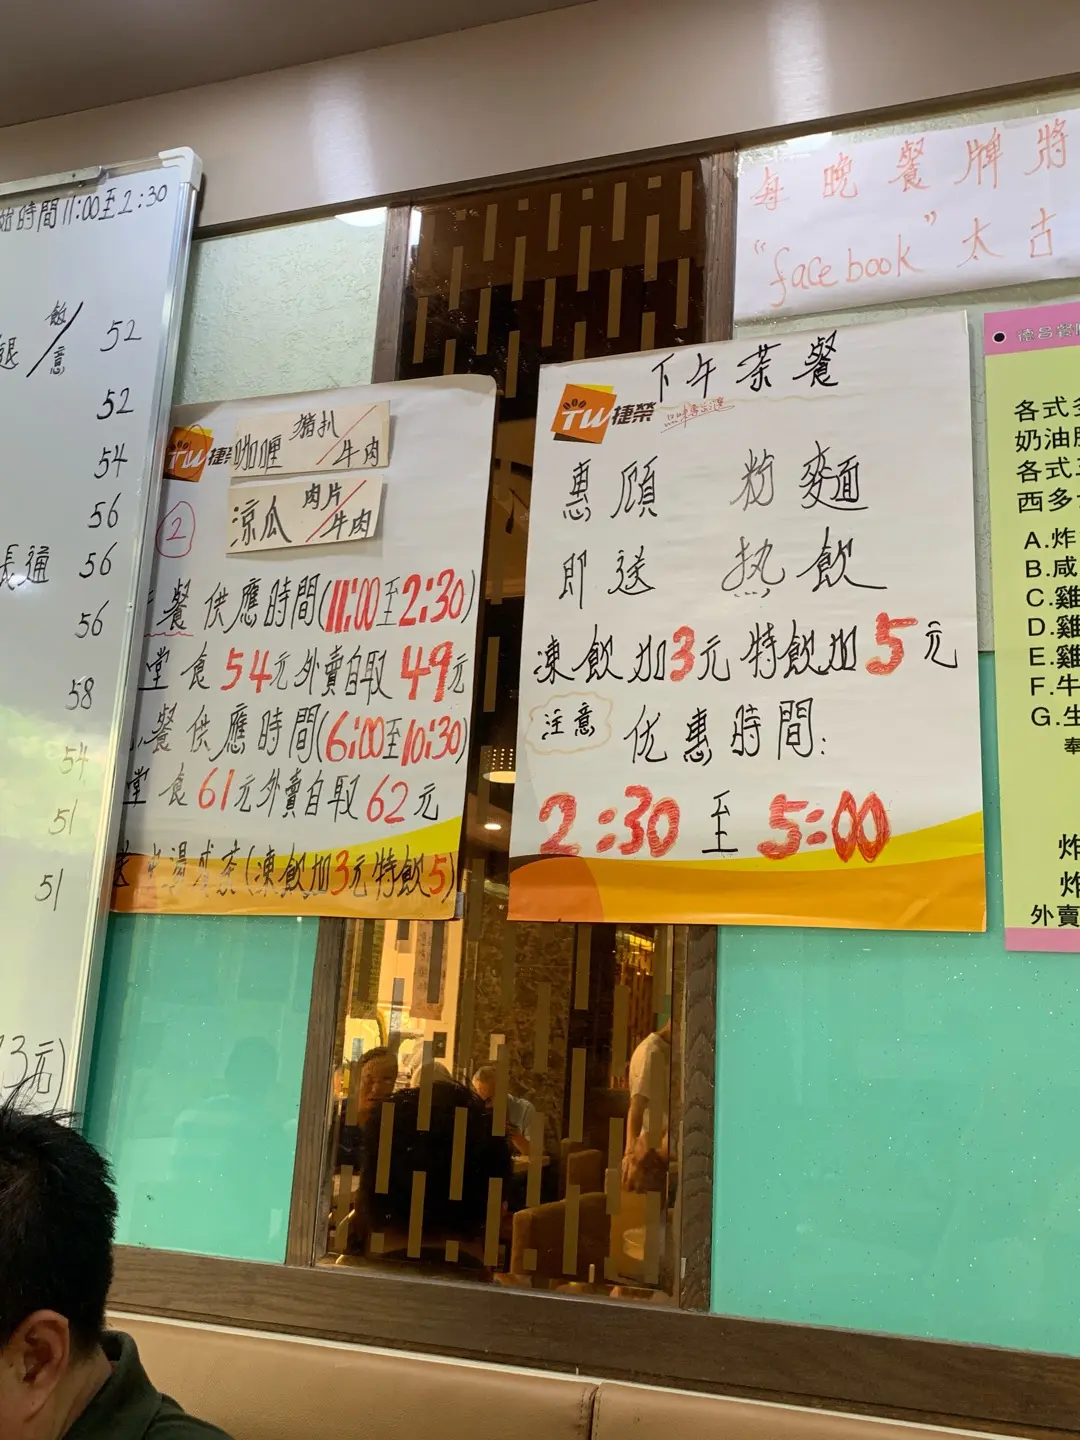 時間11:00至2:30
飯/意 52
52
54
56
長通 56
56
58
54
51
51
3元)
TW捷
咖喱 豬扒/牛肉
涼瓜 肉片/牛肉
2
餐供應時間(11:00至2:30)
堂食54元外賣自取49元
餐供應時間(6:00至10:30)
堂食61元外賣自取62元
湯或茶(凍飲加3元特飲5)
下午茶餐
TW捷榮
惠顧 粉麵
即送 热飲
凍飲加3元特飲加5元
注意 优惠時間:
2:30至5:00
每晚餐牌將
"facebook"太古
德昌餐
各式
奶油
各式
西多
A.炸
B.咸
C.雞
D.雞
E.雞
F.牛
G.生
奉
炸
炸
外賣